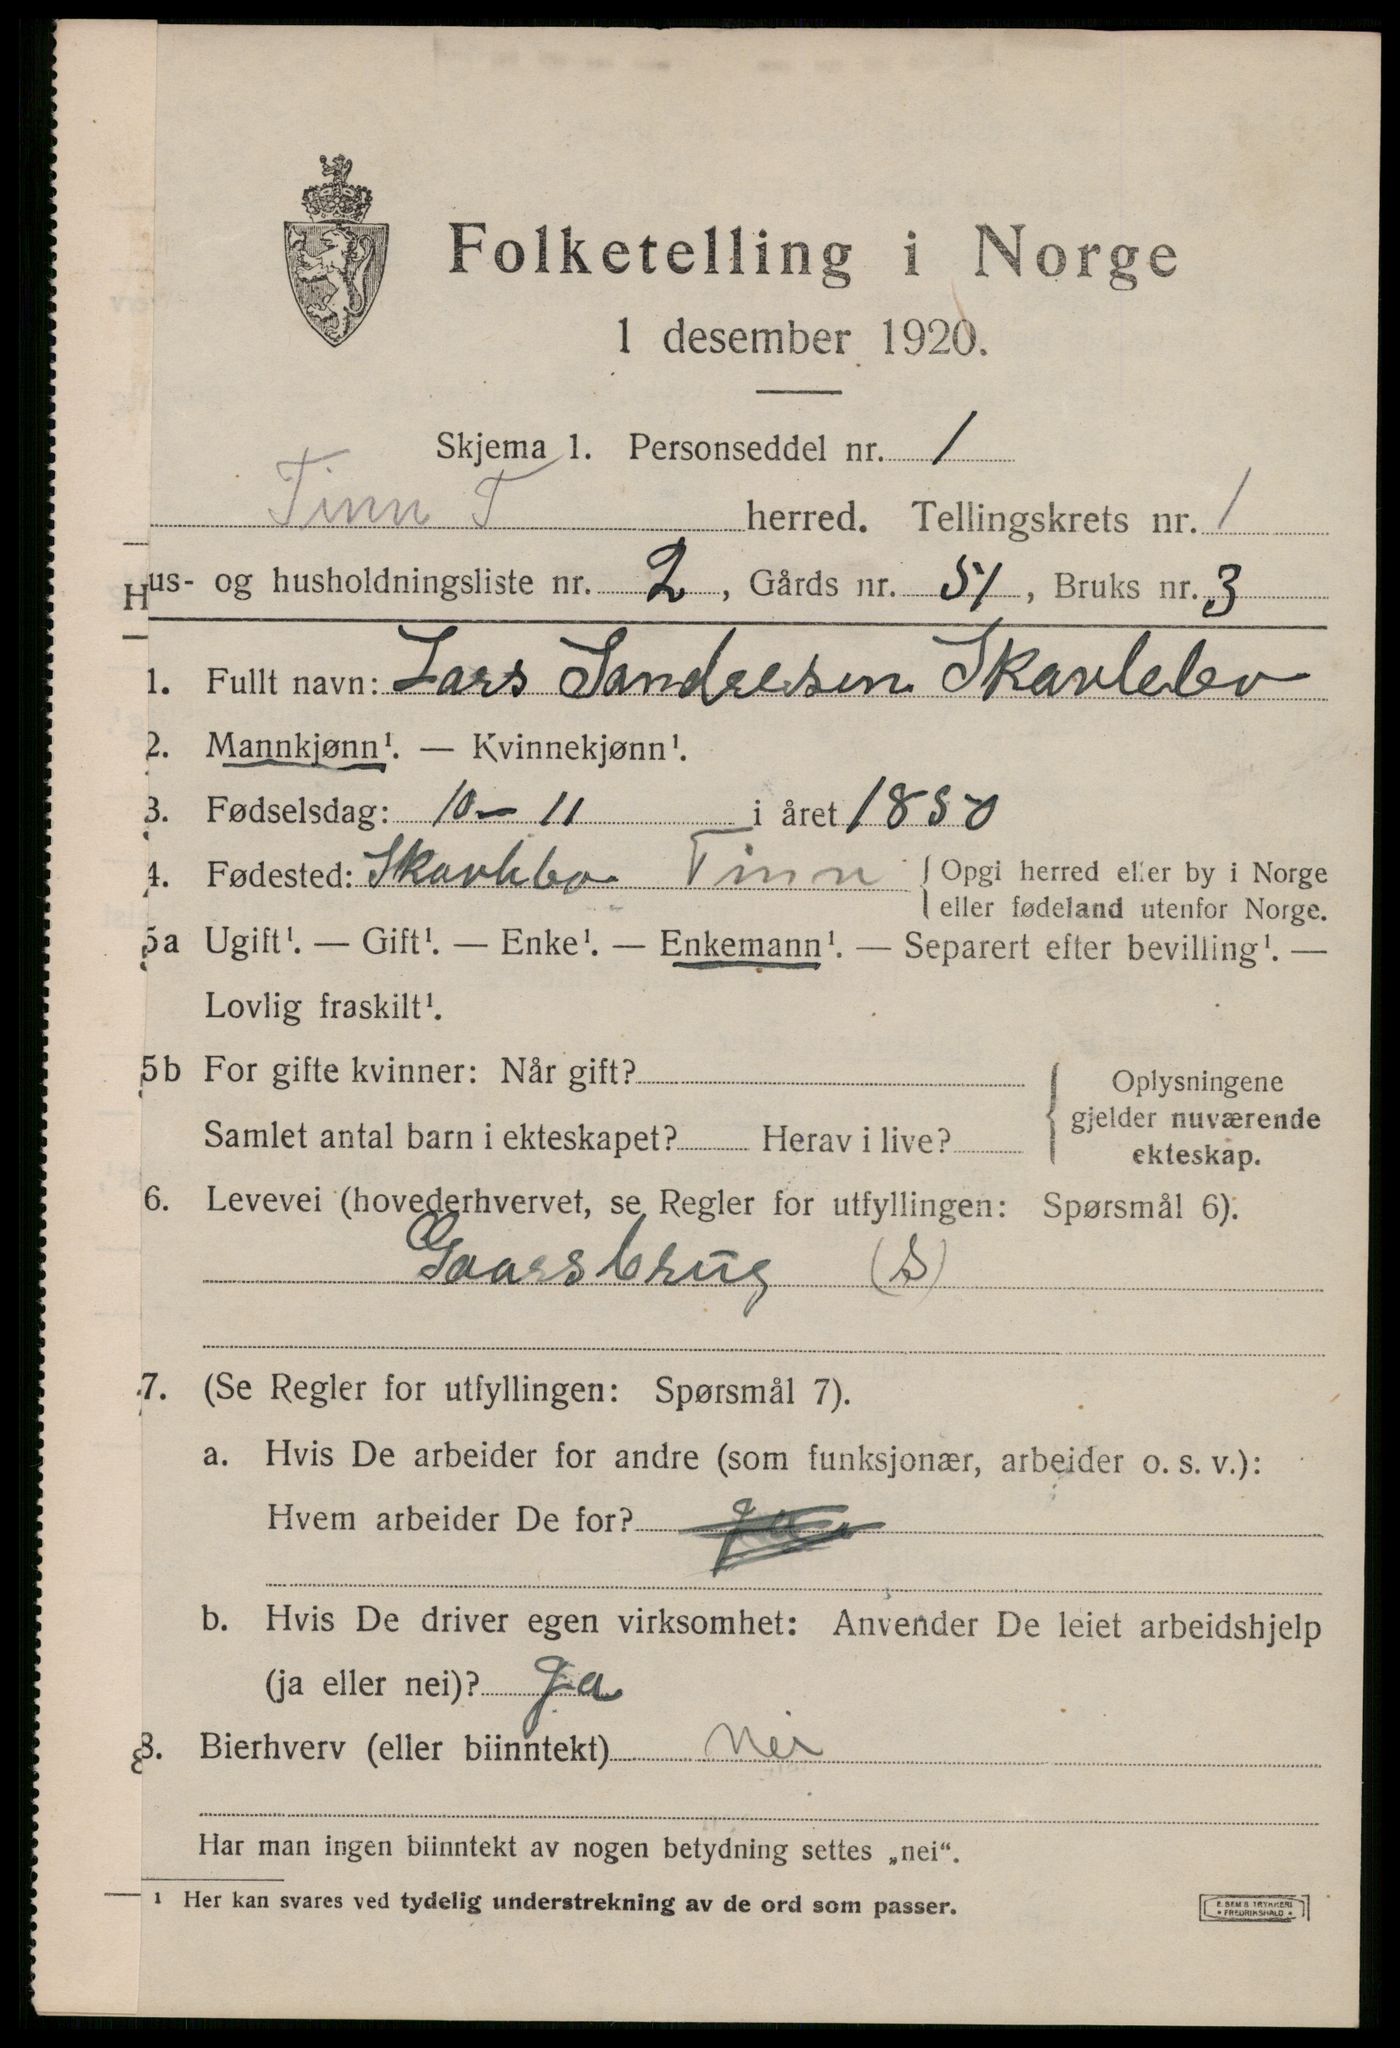 Folketelling i Norge
1 desember 1920.
Skjema 1. Personseddel nr. 1
Tinn T herred. Tellingskrets nr. 1
Hus- og husholdningsliste nr. 2, Gårds nr. 51, Bruks nr. 3
1. Fullt navn: Lars Sandresen Skavlebo
2. Mannkjønn¹. — Kvinnekjønn¹.
3. Fødselsdag: 10 – 11 i året 1850
4. Fødested: Skavlebo Tinn { Opgi herred eller by i Norge
eller fødeland utenfor Norge.
5a Ugift¹. — Gift¹. — Enke¹. — Enkemann¹. — Separert efter bevilling¹. —
Lovlig fraskilt¹.
5b For gifte kvinner: Når gift? { Oplysningene
gjelder nuværende
Samlet antal barn i ekteskapet? Herav i live?
ekteskap.
6. Levevei (hovederhvervet, se Regler for utfyllingen: Spørsmål 6).
Gaarsbrug (S)
7. (Se Regler for utfyllingen: Spørsmål 7).
a. Hvis De arbeider for andre (som funksjonær, arbeider o. s. v.):
Hvem arbeider De for?
b. Hvis De driver egen virksomhet: Anvender De leiet arbeidshjelp
(ja eller nei)? Ja
8. Bierhverv (eller biinntekt) Nei
Har man ingen biinntekt av nogen betydning settes „nei“.
¹ Her kan svares ved tydelig understrekning av de ord som passer.
E SEM S TRYKKERI
FREDRIKSHALD